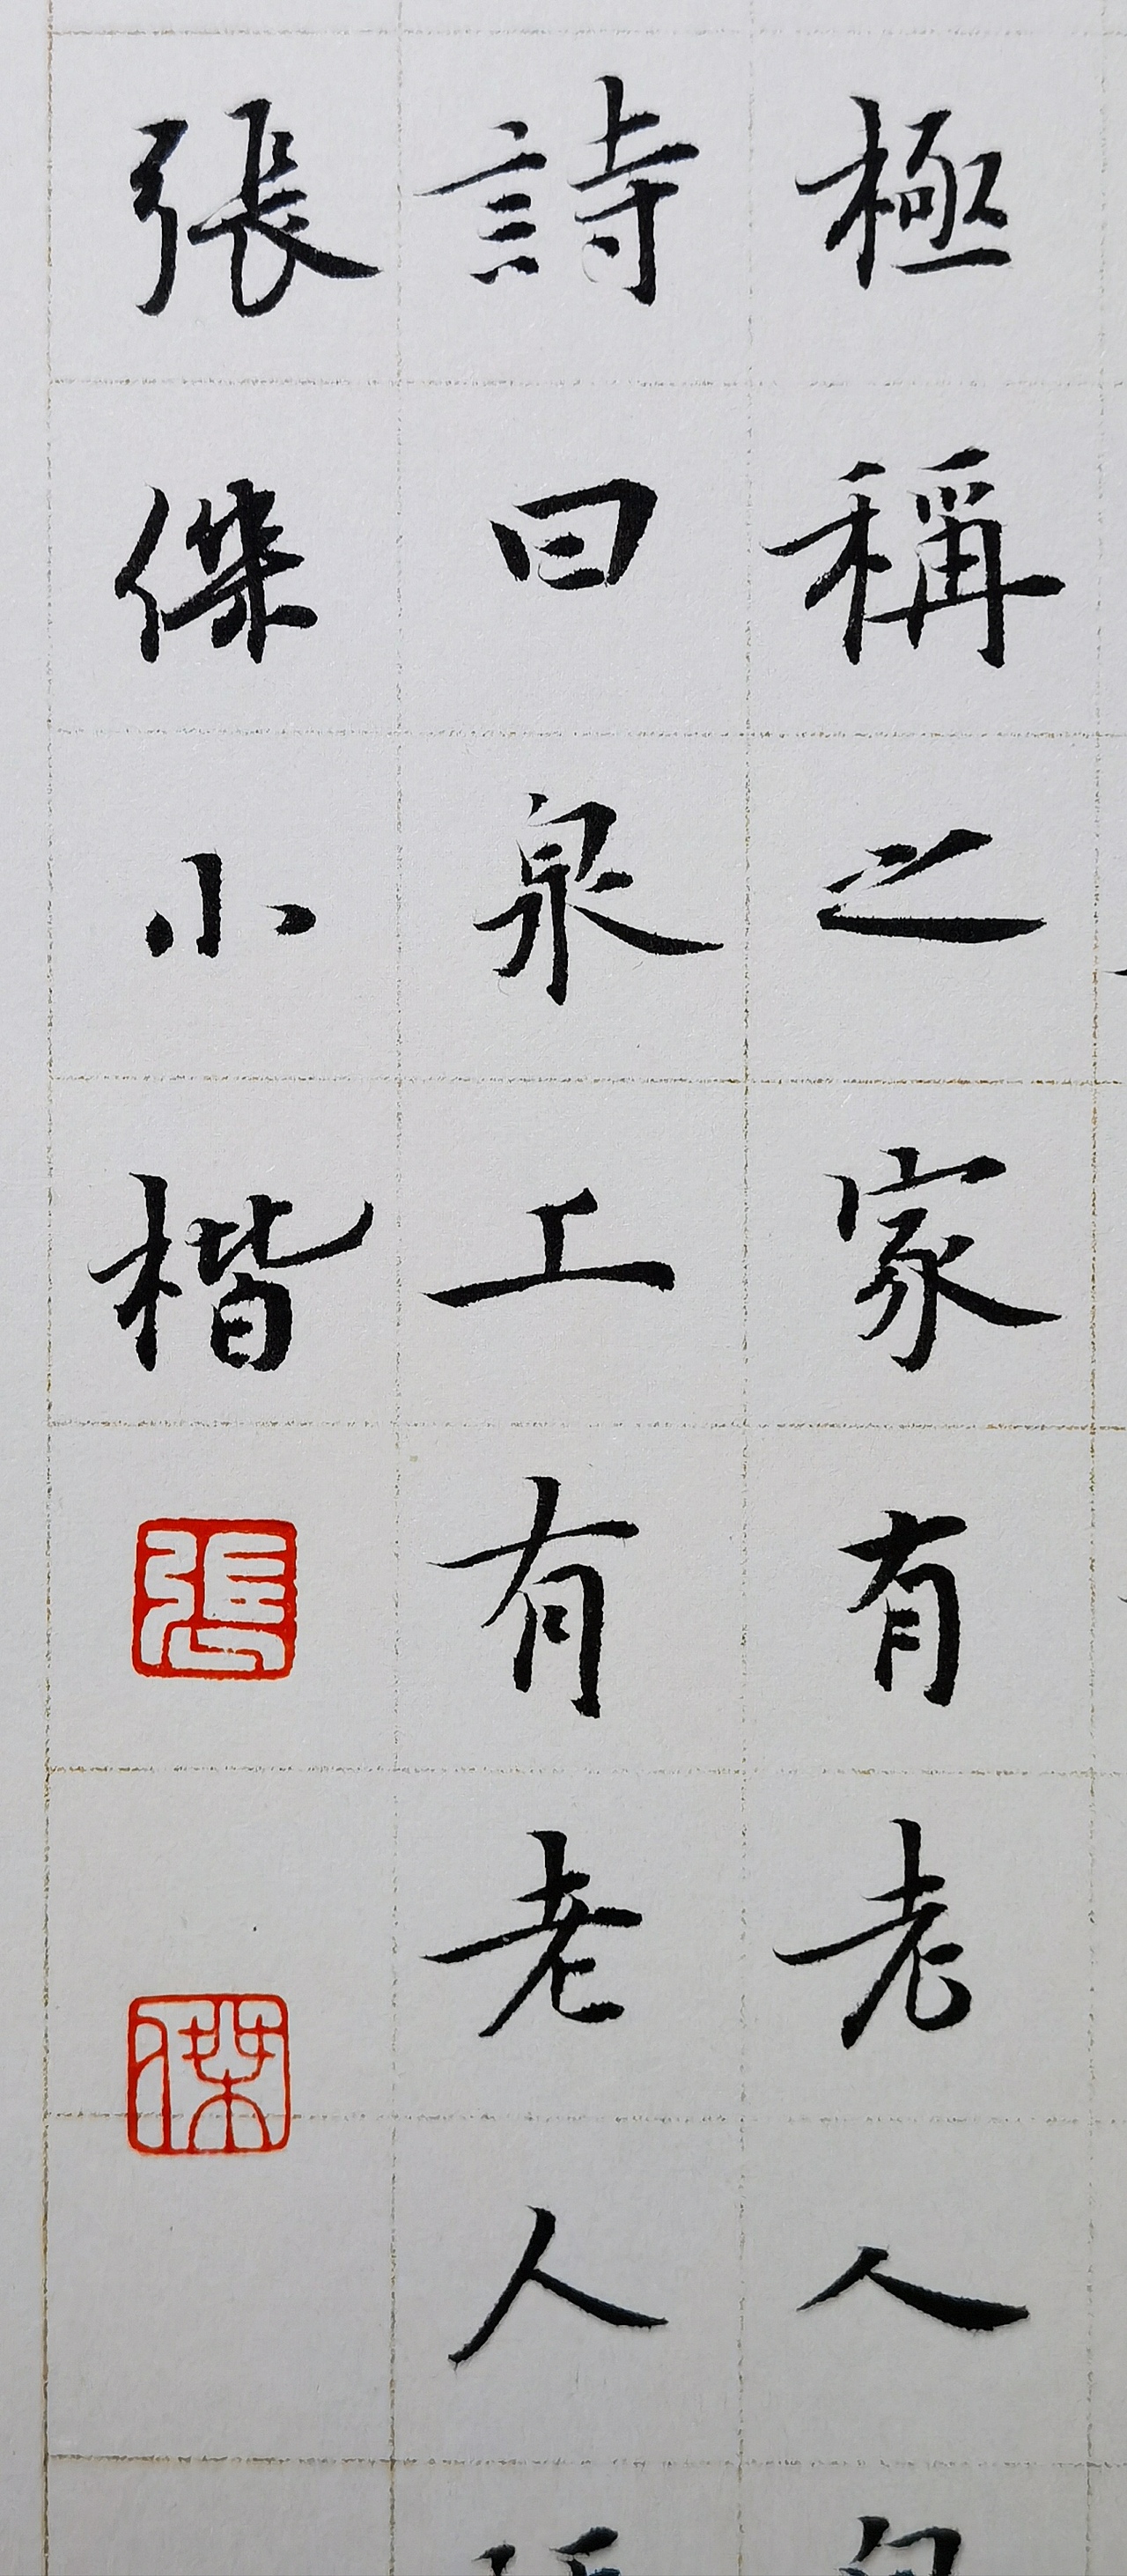 極稱之家有老人
詩曰泉工有老人
張傑小楷
張
傑